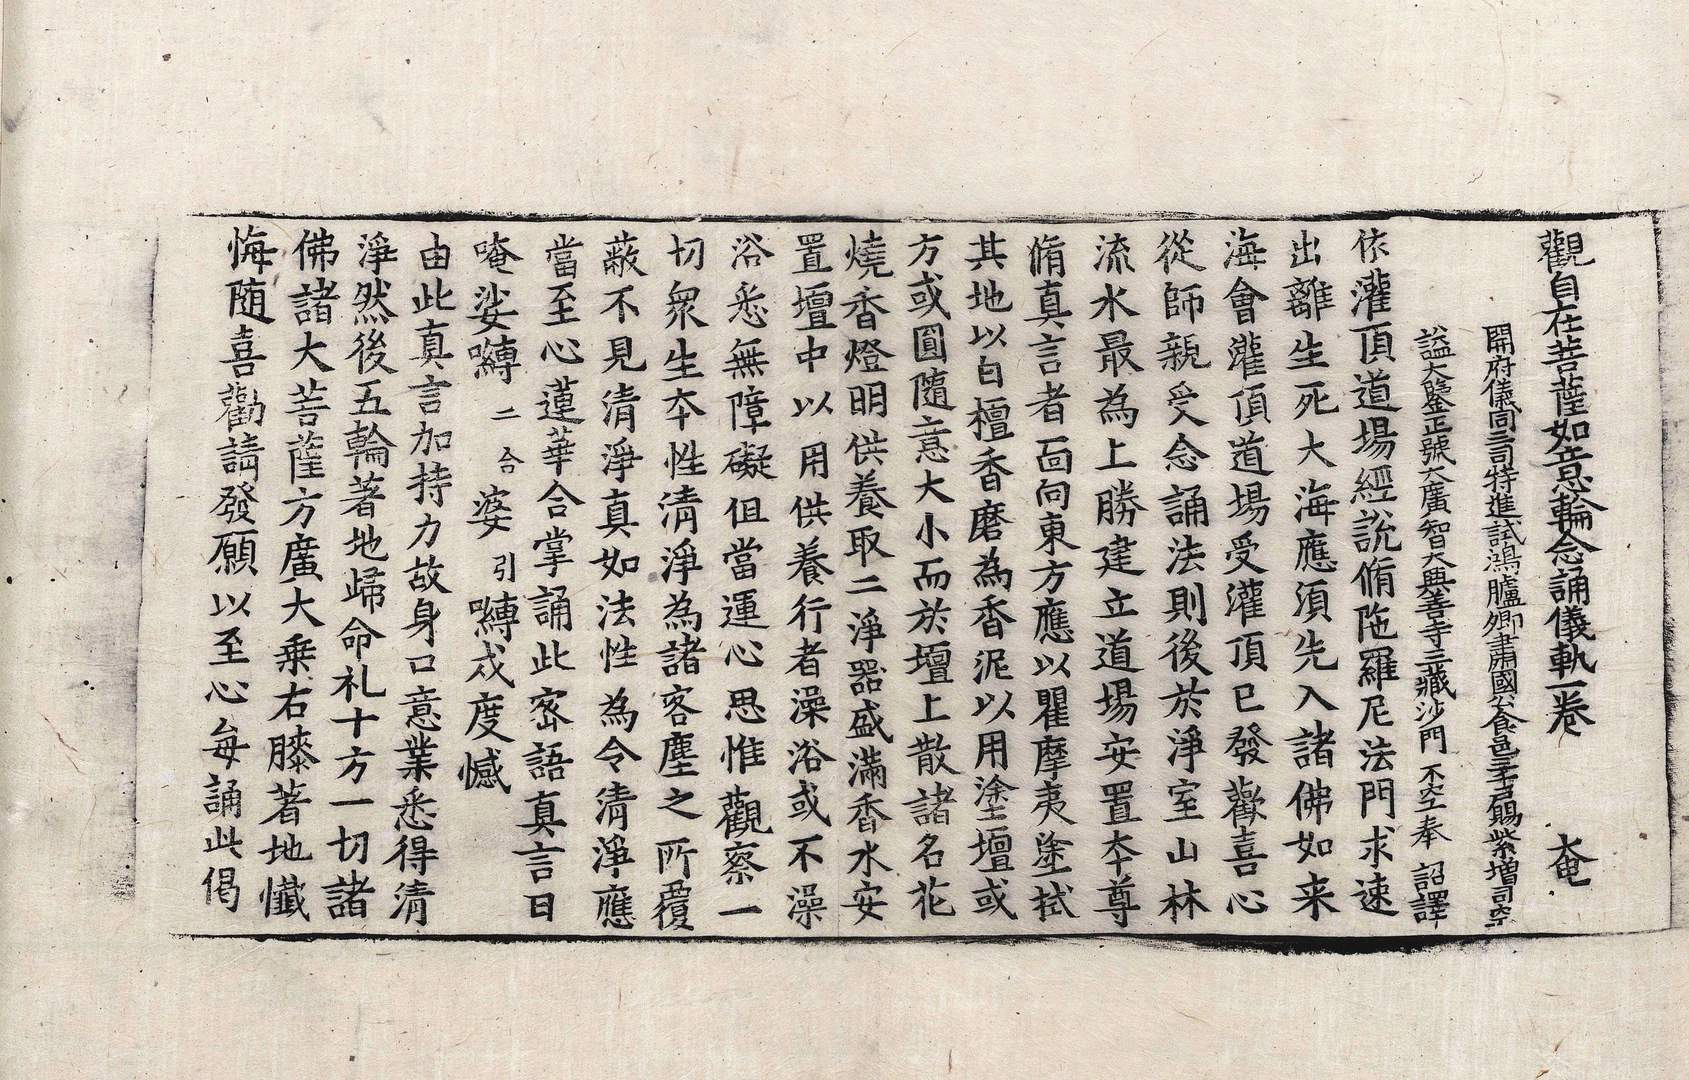 觀自在菩薩如意輪念誦儀軌一卷　奄
開府儀同三司特進試鴻臚卿肅國公食邑三千戶賜紫贈司空
諡大鑒正號大廣智大興善寺三藏沙門 不空奉 詔譯
依灌頂道場經說脩陁羅尼法門求速
出離生死大海應須先入諸佛如来
海會灌頂道場受灌頂已發歡喜心
從師親受念誦法則後於淨室山林
流水最為上勝建立道場安置夲尊
脩真言者面向東方應以瞿摩夷塗拭
其地以白檀香磨為香泥以用塗壇或
方或圓隨意大小而於壇上散諸名花
燒香燈明供養取二淨器盛滿香水安
置壇中以用供養行者澡浴或不澡
浴悉無障礙但當運心思惟觀察一
切衆生夲性清淨為諸客塵之所覆
蔽不見清淨真如法性為令清淨應
當至心蓮華合掌誦此密語真言曰
唵娑嚩二合婆引嚩戍度憾
由此真言加持力故身口意業悉得清
淨然後五輪著地歸命礼十方一切諸
佛諸大菩薩方廣大乗右膝著地懺
悔随喜勸請發願以至心每誦此偈